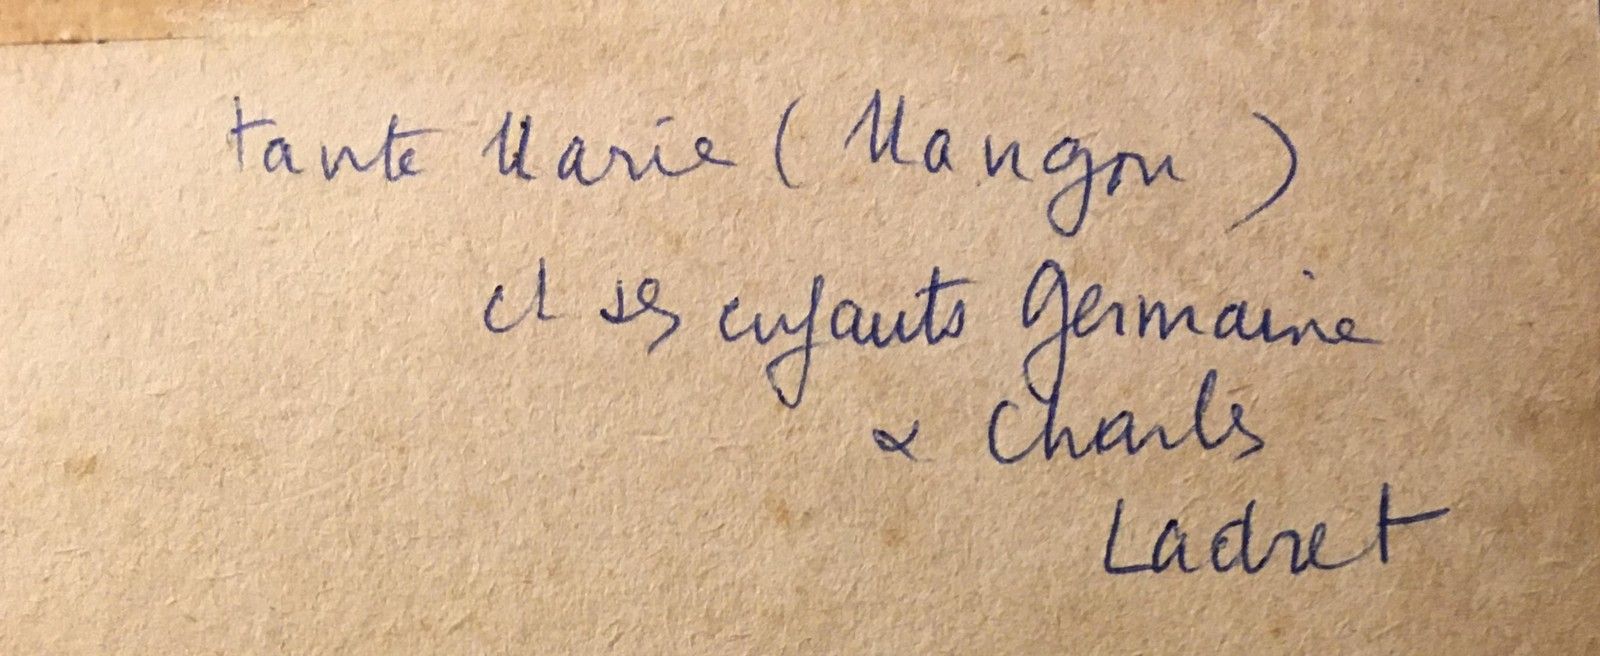 tante Marie (Mangon)
et ses enfants Germaine
& Charles
Ladret